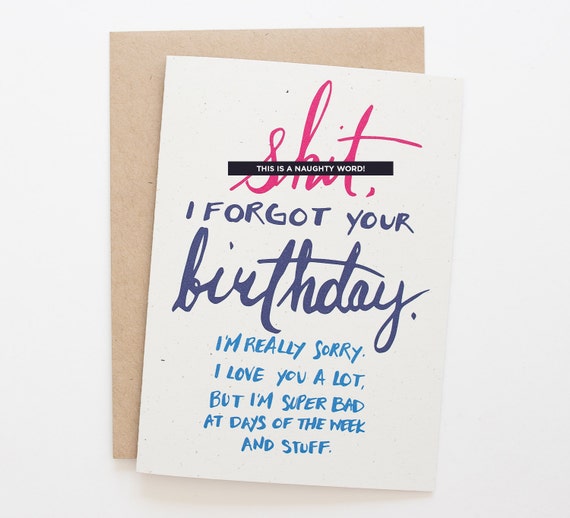 shit,
THIS IS A NAUGHTY WORD!
I FORGOT YOUR
birthday.
I'M REALLY SORRY.
I LOVE YOU A LOT,
BUT I'M SUPER BAD
AT DAYS OF THE WEEK
AND STUFF.